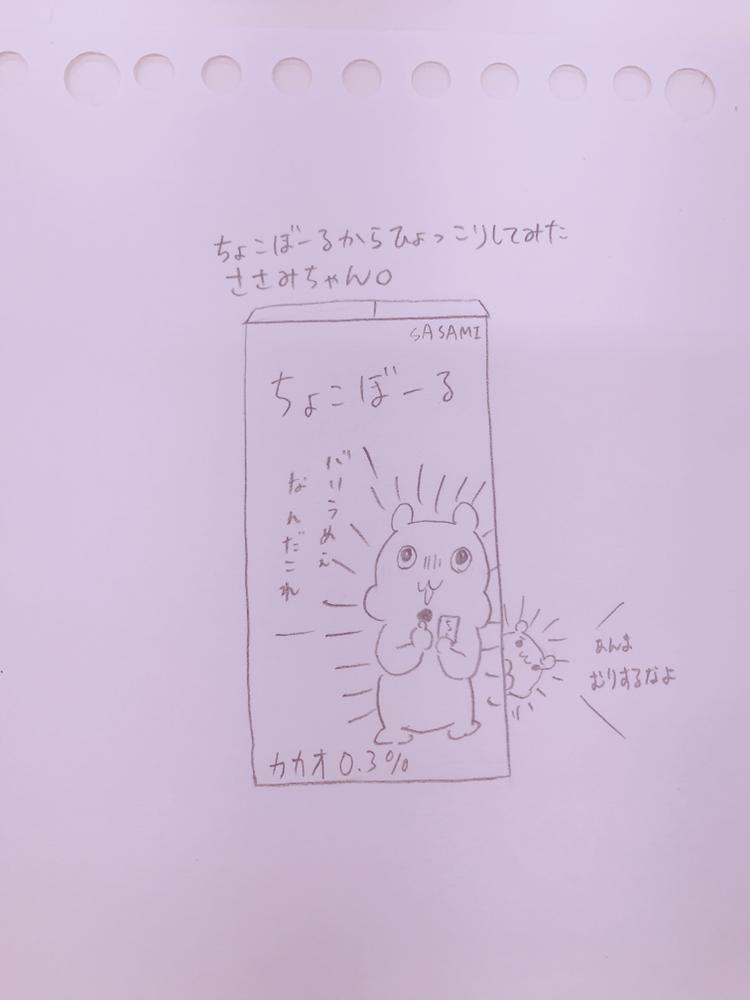 ちょこぼーるからひょっこりしてみた
ささみちゃん。
SASAMI
ちょこぼーる
バリうめぇ
なんだこれ
あんま
むりするなよ
カカオ0.3%